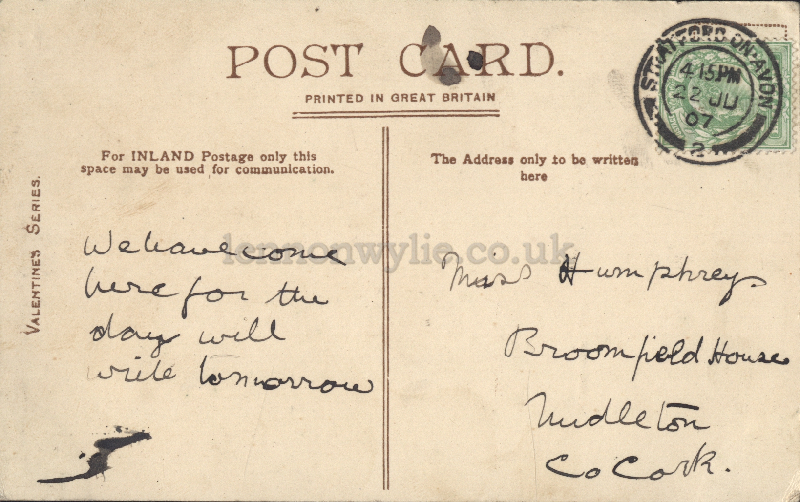 POST CARD.
PRINTED IN GREAT BRITAIN
STRATFORD-ON-AVON
4.15PM
22 JU
07
24
For INLAND Postage only this
space may be used for communication.
The Address only to be written
here
VALENTINE'S SERIES.
lennonwylie.co.uk
We have come
here for the
day will
write tomorrow
Miss Humphreys
Broomfield House
Midleton
Co Cork.